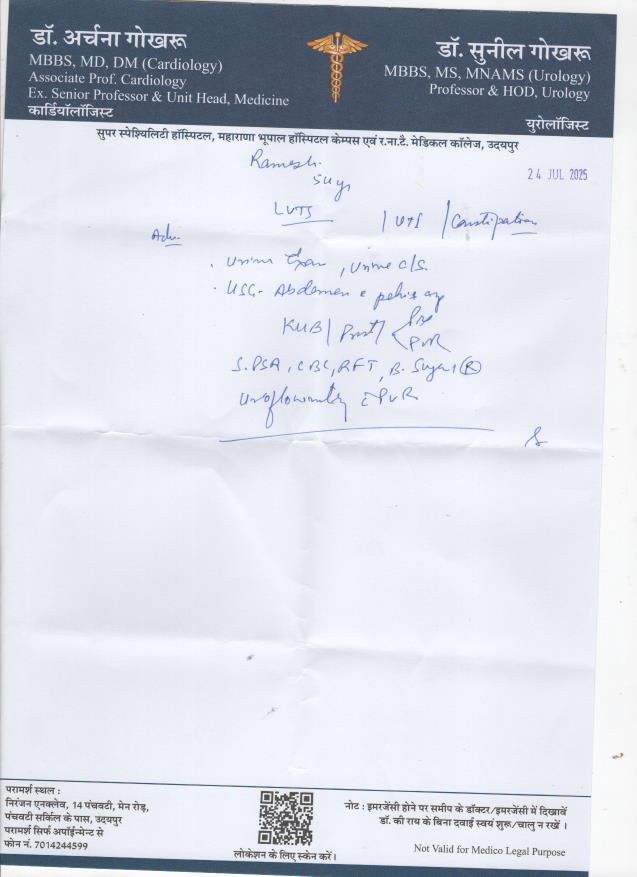 डॉ. अर्चना गोखरू
MBBS, MD, DM (Cardiology)
Associate Prof. Cardiology
Ex. Senior Professor & Unit Head, Medicine
कार्डियॉलॉजिस्ट
डॉ. सुनील गोखरू
MBBS, MS, MNAMS (Urology)
Professor & HOD, Urology
युरोलॉजिस्ट
सुपर स्पेश्यिलिटी हॉस्पिटल, महाराणा भूपाल हॉस्पिटल केम्पस एवं र.ना.टै. मेडिकल कॉलेज, उदयपुर
24 JUL 2025
Ramesh
LUTS / UTS / Constipation
Adv.
. Urine , Urine c/s.
. USG- Abdomen c pelvis
KUB / Prost / PVR
S. PSA, CBC, RFT, B. Sugar (R)
Uroflowmetry c PVR
परामर्श स्थल :
निरंजन एनक्लेव, 14 पंचवटी, मेन रोड़,
पंचवटी सर्किल के पास, उदयपुर
परामर्श सिर्फ अपॉईन्मेन्ट से
फोन नं. 7014244599
लोकेशन के लिए स्केन करें।
नोट : इमरजेंसी होने पर समीप के डॉक्टर/इमरजेंसी में दिखावें
डॉ. की राय के बिना दवाई स्वयं शुरू/चालु न रखें ।
Not Valid for Medico Legal Purpose